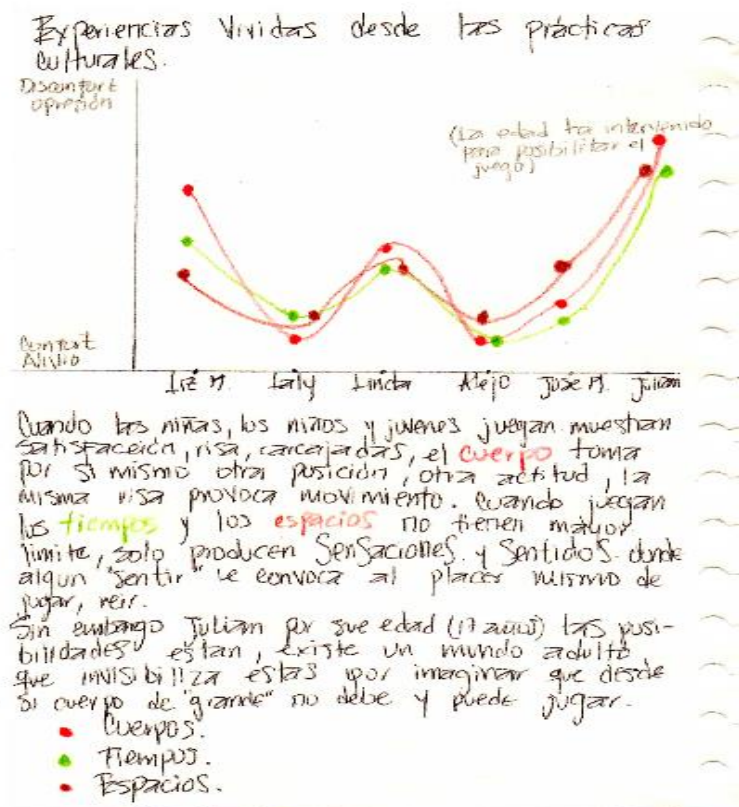 Experiencias Vividas desde las prácticas
culturales.
Disconfort
opresión
(La edad ha intervenido
para posibilitar el
juego)
Confort
Alivio
Liz M. Laly Linda Alejo José M. Julian
Cuando las niñas, los niños y jovenes juegan muestran
satisfacción, risa, carcajadas, el cuerpo toma
por si mismo otra posición, otra actitud, la
misma risa provoca movimiento. Cuando juegan
los tiempos y los espacios no tienen mayor
limite, solo producen Sensaciones y Sentidos donde
algun "sentir" le convoca al placer mismo de
jugar, reir.
Sin embargo Julian por sue edad (17 años) las posi-
bilidades estan, existe un mundo adulto
que invisibiliza estas por imaginar que desde
su cuerpo de "grande" no debe y puede jugar.
Cuerpos.
Tiempos.
Espacios.